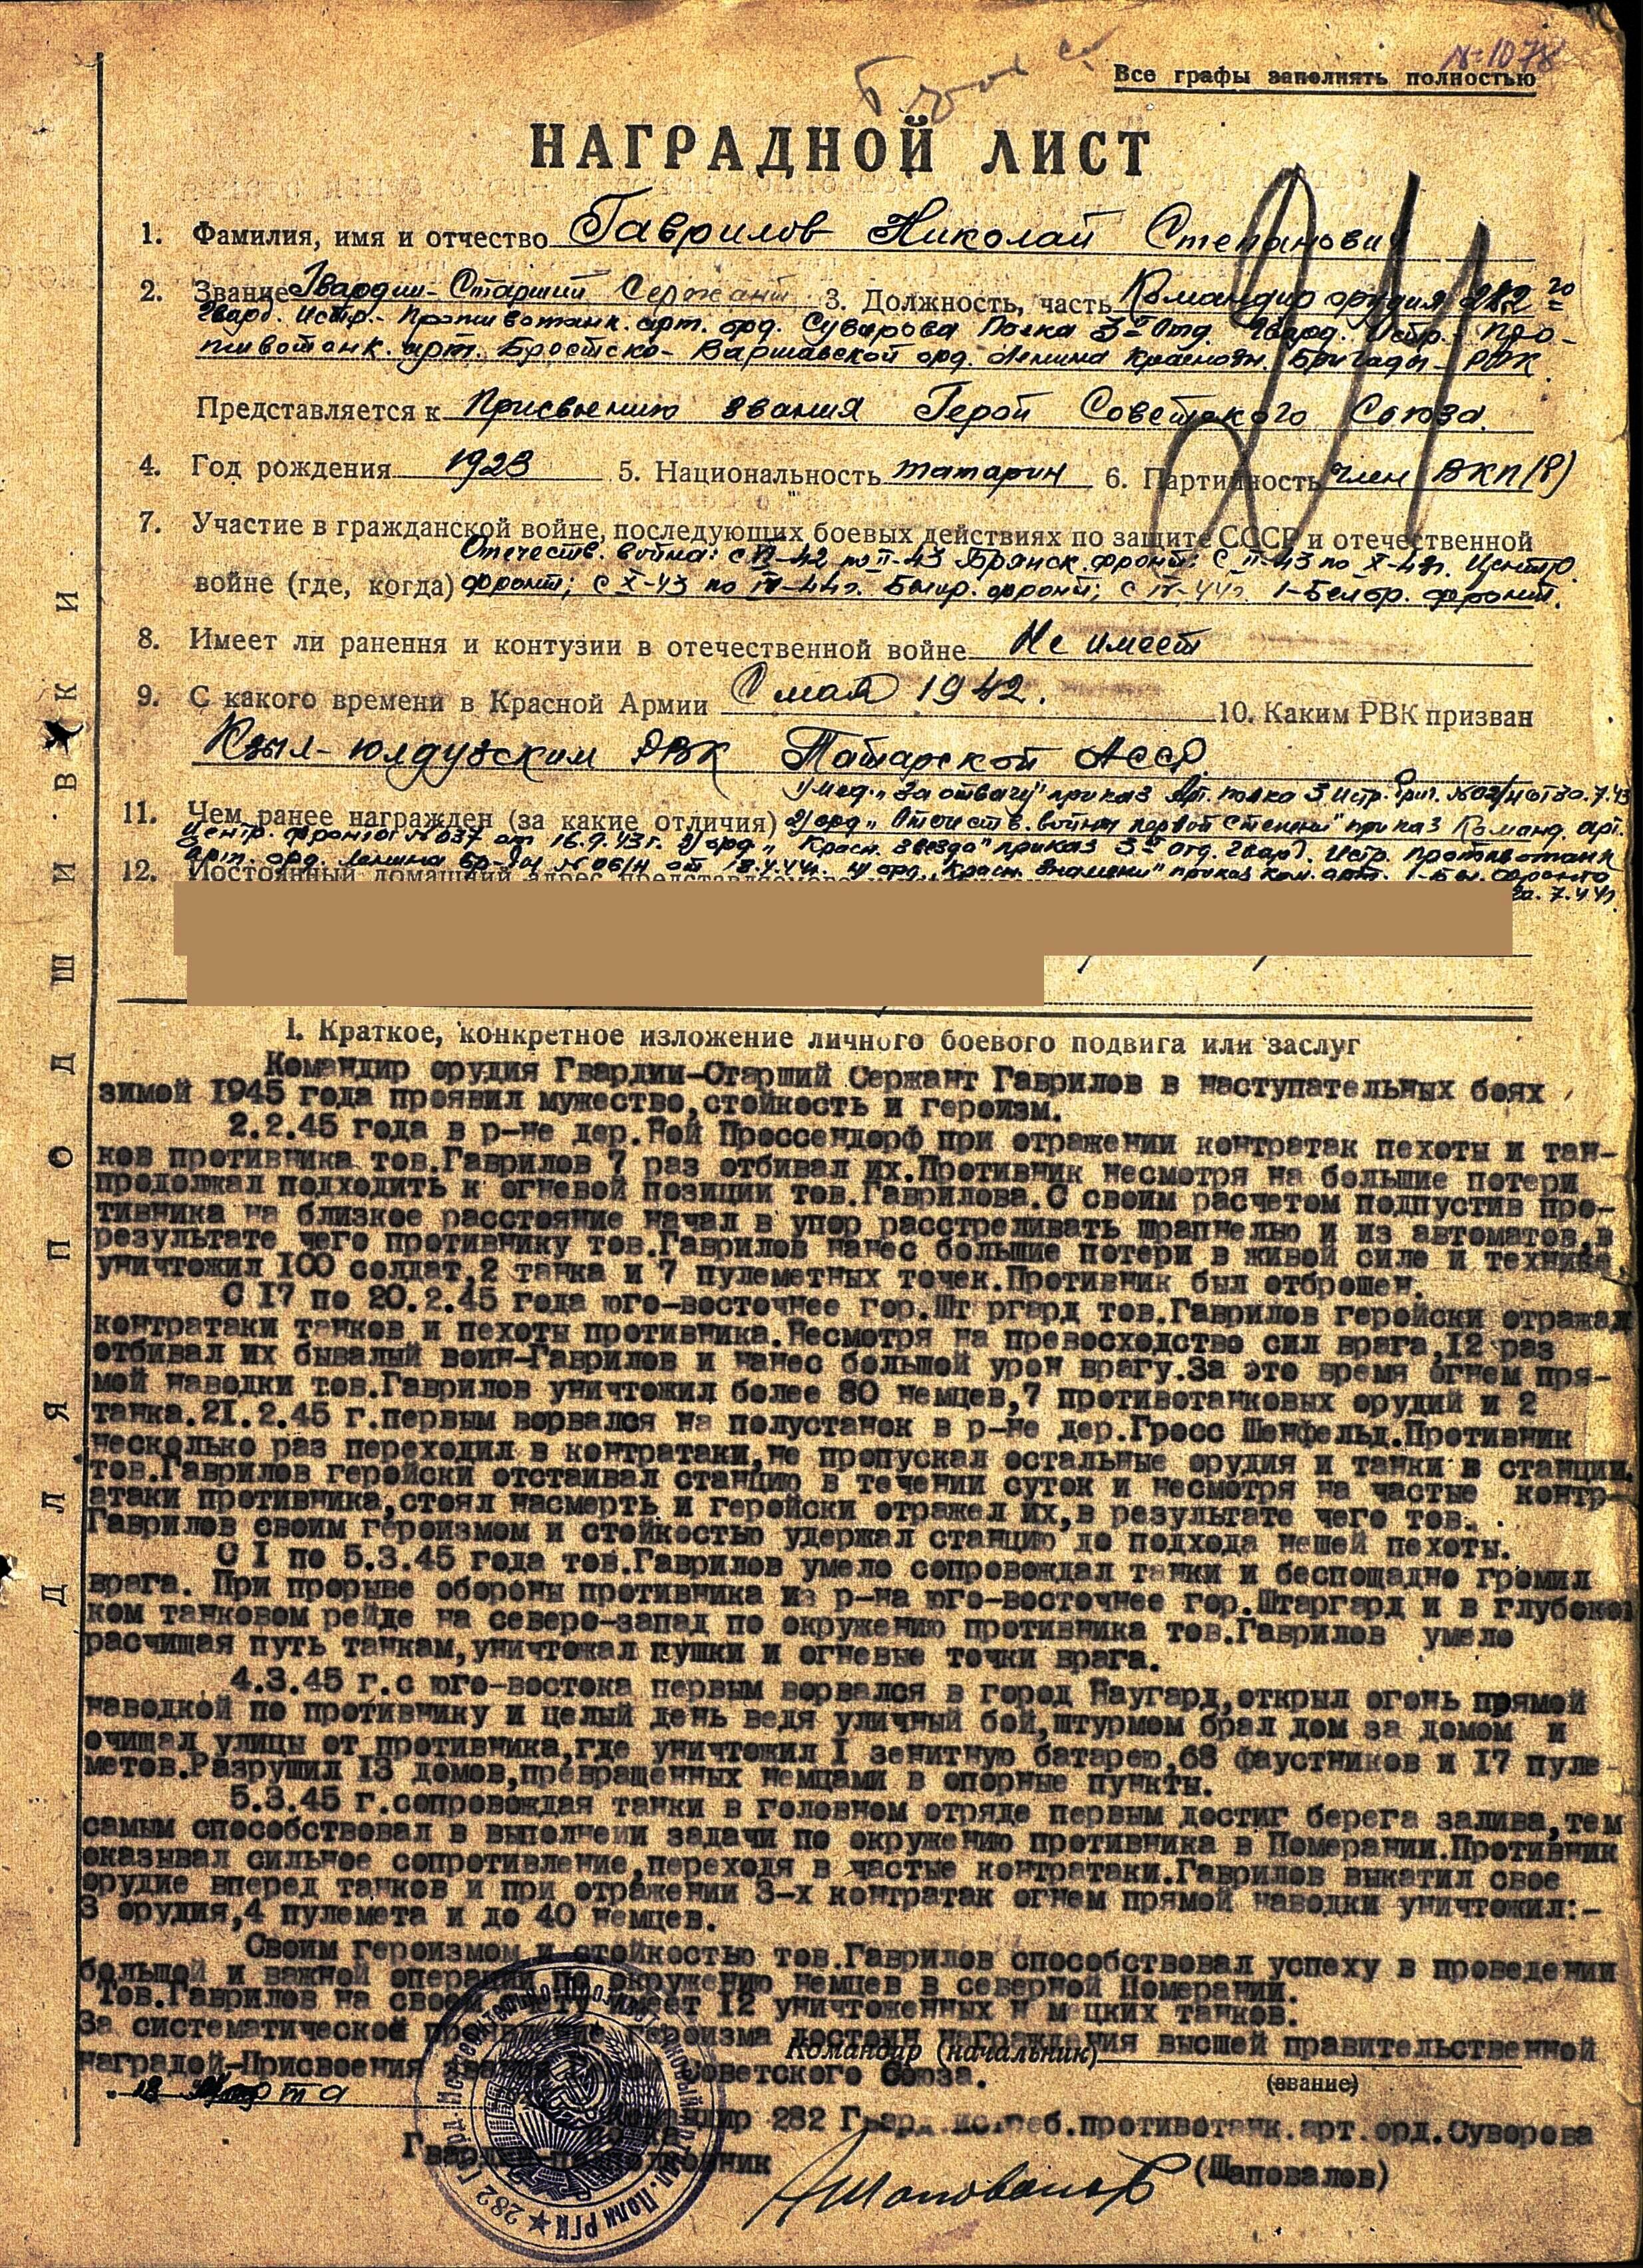 № 1078
Все графы заполнять полностью
НАГРАДНОЙ ЛИСТ
1. Фамилия, имя и отчество Гаврилов Николай Степанович
2. Звание Гвардии-Старший Сержант 3. Должность, часть Командир орудия 282 го
Гвард. Истр.- Противотанк. арт. орд. Суворова Полка 3й Отд. Гвард. Истр.- Про-
тивотанк. арт. Брестско- Варшавской орд. Ленина Краснозн. Бригады- РГК
Представляется к Присвоению звания Герой Советского Союза.
4. Год рождения 1923 5. Национальность татарин 6. Партийность член ВКП(б)
7. Участие в гражданской войне, последующих боевых действиях по защите СССР и отечественной
Отечеств. война: с VI-42 по II-43 Брянск. фронт; с II-43 по X-43г. Центр.
войне (где, когда) фронт; с X-43 по IV-44г. Белор. фронт; с IV-44г. 1-Белор. фронт.
8. Имеет ли ранения и контузии в отечественной войне Не имеет
9. С какого времени в Красной Армии С мая 1942. 10. Каким РВК призван
Кзыл-юлдузским РВК Татарской АССР
1) мед. „За отвагу" приказ Арт. полка 3 Истр. Бриг. № 02/н от 30.7.43
11. Чем ранее награжден (за какие отличия) 2) орд „Отечеств. войны первой степени" приказ Команд. арт.
Центр. фронтог № 037 от 16.9.43г. 3) орд „Красн. звезда" приказ 3й Отд. Гвард. Истр. Противотанк
Арт. орд. Ленина бр-ды № 06/н от 18.4.44г. 4) орд „Красн. Знамени" приказ ком. арт. 1-Бел. фронта
12. Постоянный домашний адрес представляемого
7.44г.
ДЛЯ ПОДШИВКИ
I. Краткое, конкретное изложение личного боевого подвига или заслуг
Командир орудия Гвардии-Старший Сержант Гаврилов в наступательных боях
зимой 1945 года проявил мужество,стойкость и героизм.
2.2.45 года в р-не дер.Ной Проссендорф при отражении контратак пехоты и тан-
ков противника тов.Гаврилов 7 раз отбивал их.Противник несмотря на большие потери
продолжал подходить к огневой позиции тов.Гаврилова.С своим расчетом подпустив про-
тивника на близкое расстояние начал в упор расстреливать шрапнелью и из автоматов,в
результате чего противнику тов.Гаврилов нанес большие потери в живой силе и технике
уничтожил 100 солдат,2 танка и 7 пулеметных точек.Противник был отброшен.
С 17 по 20.2.45 года юго-восточнее гор.Шт ргард тов.Гаврилов геройски отражал
контратаки танков и пехоты противника.Несмотря на превосходство сил врага,12 раз
отбивал их бывалый воин-Гаврилов и нанес большой урон врагу.За это время огнем пря-
мой наводки тов.Гаврилов уничтожил более 80 немцев,7 противотанковых орудий и 2
танка.21.2.45 г.первым ворвался на полустанок в р-не дер.Гросс Шенфельд.Противник
несколько раз переходил в контратаки,не пропускал остальные орудия и танки к станции.
тов.Гаврилов геройски отстаивал станцию в течении суток и несмотря на частые контр-
атаки противника,стоял насмерть и геройски отражел их,в результате чего тов.
Гаврилов своим героизмом и стойкостью удержал станцию до подхода нешей пехоты.
С I по 5.3.45 года тов.Гаврилов умело сопровождал танки и беспощадно громил
врага. При прорыве обороны противника из р-на юго-восточнее гор.Штаргард и в глубоком
ком танковом рейде на северо-запад по окружению противника тов.Гаврилов умело
расчищая путь танкам,уничтожал пушки и огневые точки врага.
4.3.45 г.с юго-востока первым ворвался в город Наугард,открыл огонь прямой
наводкой по противнику и целый день ведя уличный бой,штурмом брал дом за домом и
очищал улицы от противника,где уничтожил I зенитную батарею,68 фаустников и 17 пуле-
метов.Разрушил 13 домов,превращенных немцами в опорные пункты.
5.3.45 г.сопровождая танки в головном отряде первым достиг берега залива,тем
самым способствовал в выполнеии задачи по окружению противника в Померании.Противник
оказывал сильное сопротивление,переходя в частые контратаки.Гаврилов выкатил свое
орудие вперед танков и при отражении 3-х контратак огнем прямой наводки уничтожил:-
3 орудия,4 пулемета и до 40 немцев.
Своим героизмом и стойкостью тов.Гаврилов способствовал успеху в проведении
большой и важной операции по окружению немцев в северной Померании.
Тов.Гаврилов на своем счету имеет 12 уничтоженных н мецких танков.
За систематическое проявление героизма достоин награждения высшей правительственной
наградой-Присвоения звания Герой Советского Союза.
Командир (начальник)
(звание)
13 марта
Командир 282 Гвард.истреб.противотанк.арт.орд.Суворова
полка
Гвардии подполковник (Шаповалов)
282 Гвард. Истребительно-Противотанковый Артил. Полк РГК